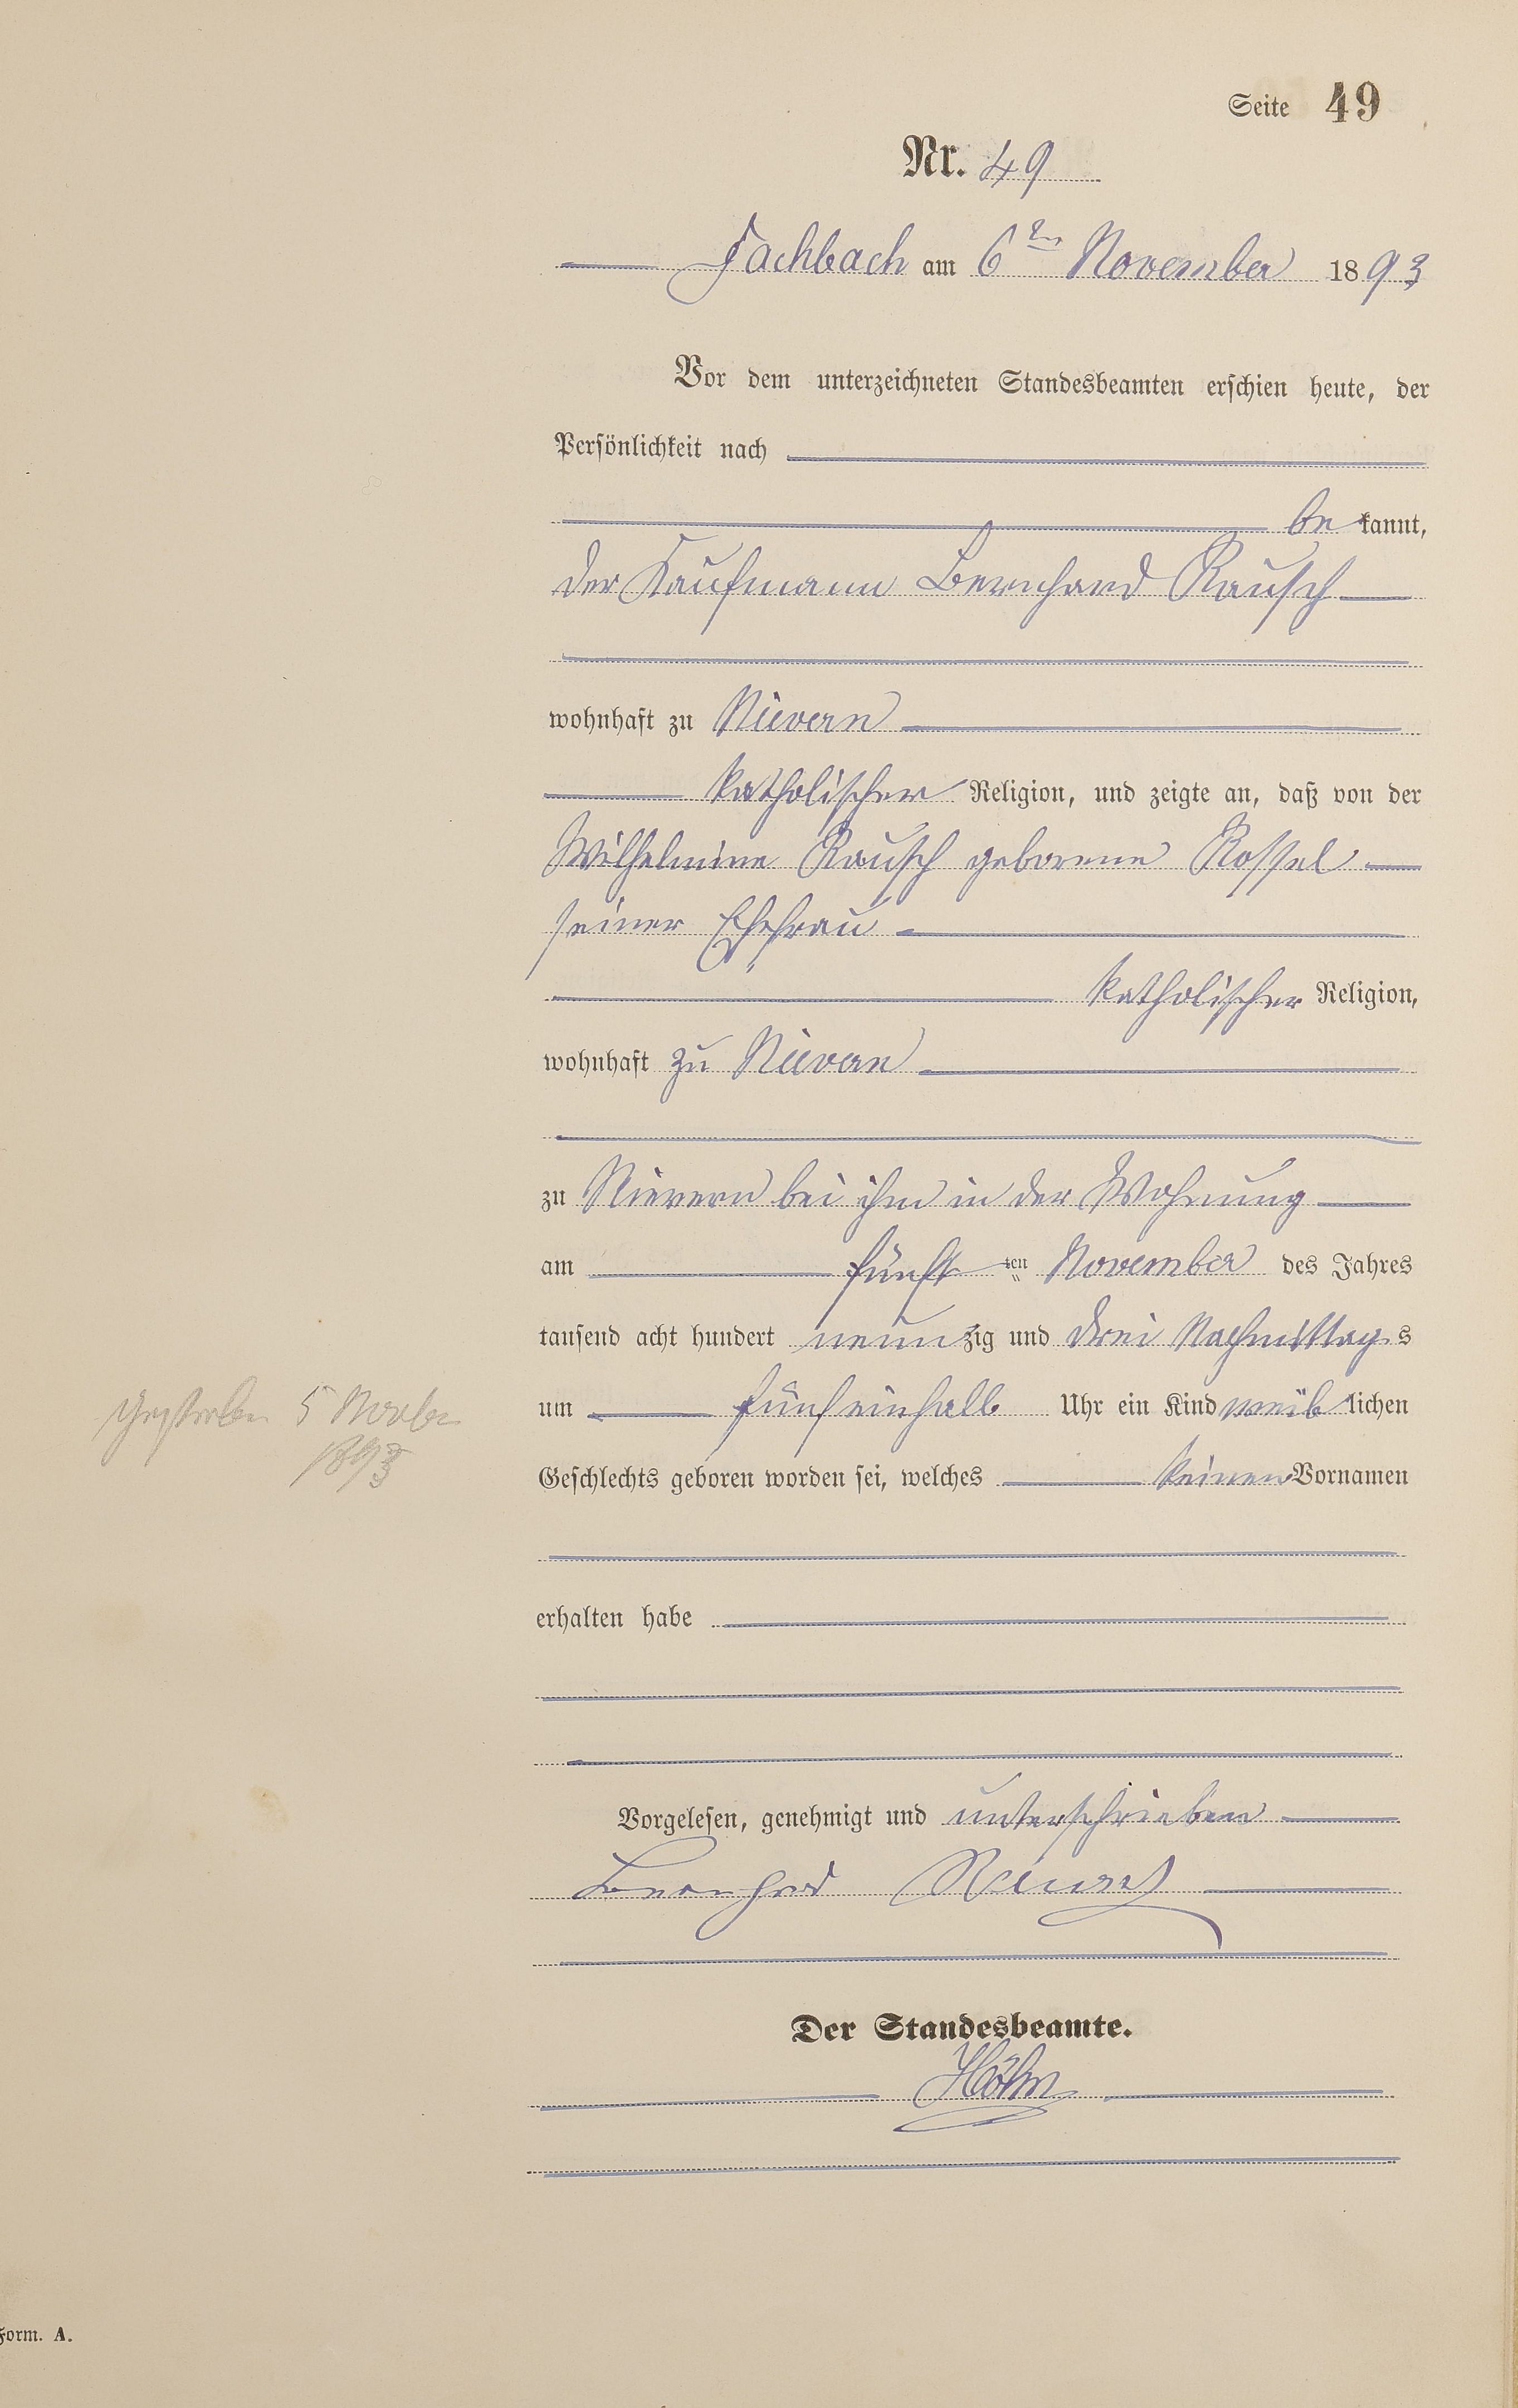 Seite 49
Nr. 49
Fachbach am 6ten November 1893
Vor dem unterzeichneten Standesbeamten erschien heute, der
Persönlichkeit nach
bekannt,
der Kaufmann Bernhard Rausch
wohnhaft zu Nievern
katholischer Religion, und zeigte an, daß von der
Wilhelmine Rausch geborene Rossel
seiner Ehefrau
katholischer Religion,
wohnhaft zu Nievern
zu Nievern bei ihm in der Wohnung
am fünften November des Jahres
tausend acht hundert neunzig und drei Nachmittags
um fünfeinhalb Uhr ein Kind weiblichen
Gestorben 5 Novber
1893
Geschlechts geboren worden sei, welches keinen Vornamen
erhalten habe
Vorgelesen, genehmigt und unterschrieben
Bernhard Rausch
Der Standesbeamte.
Höhn
Form. A.